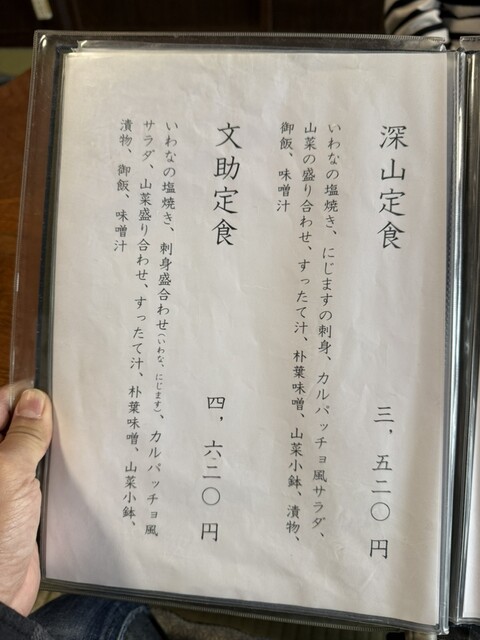 深山定食
三，五二〇円
いわなの塩焼き、にじますの刺身、カルパッチョ風サラダ、
山菜の盛り合わせ、すったて汁、朴葉味噌、山菜小鉢、漬物、
御飯、味噌汁
文助定食
四，六二〇円
いわなの塩焼き、刺身盛合わせ（いわな、にじます）、カルパッチョ風
サラダ、山菜盛り合わせ、すったて汁、朴葉味噌、山菜小鉢、
漬物、御飯、味噌汁